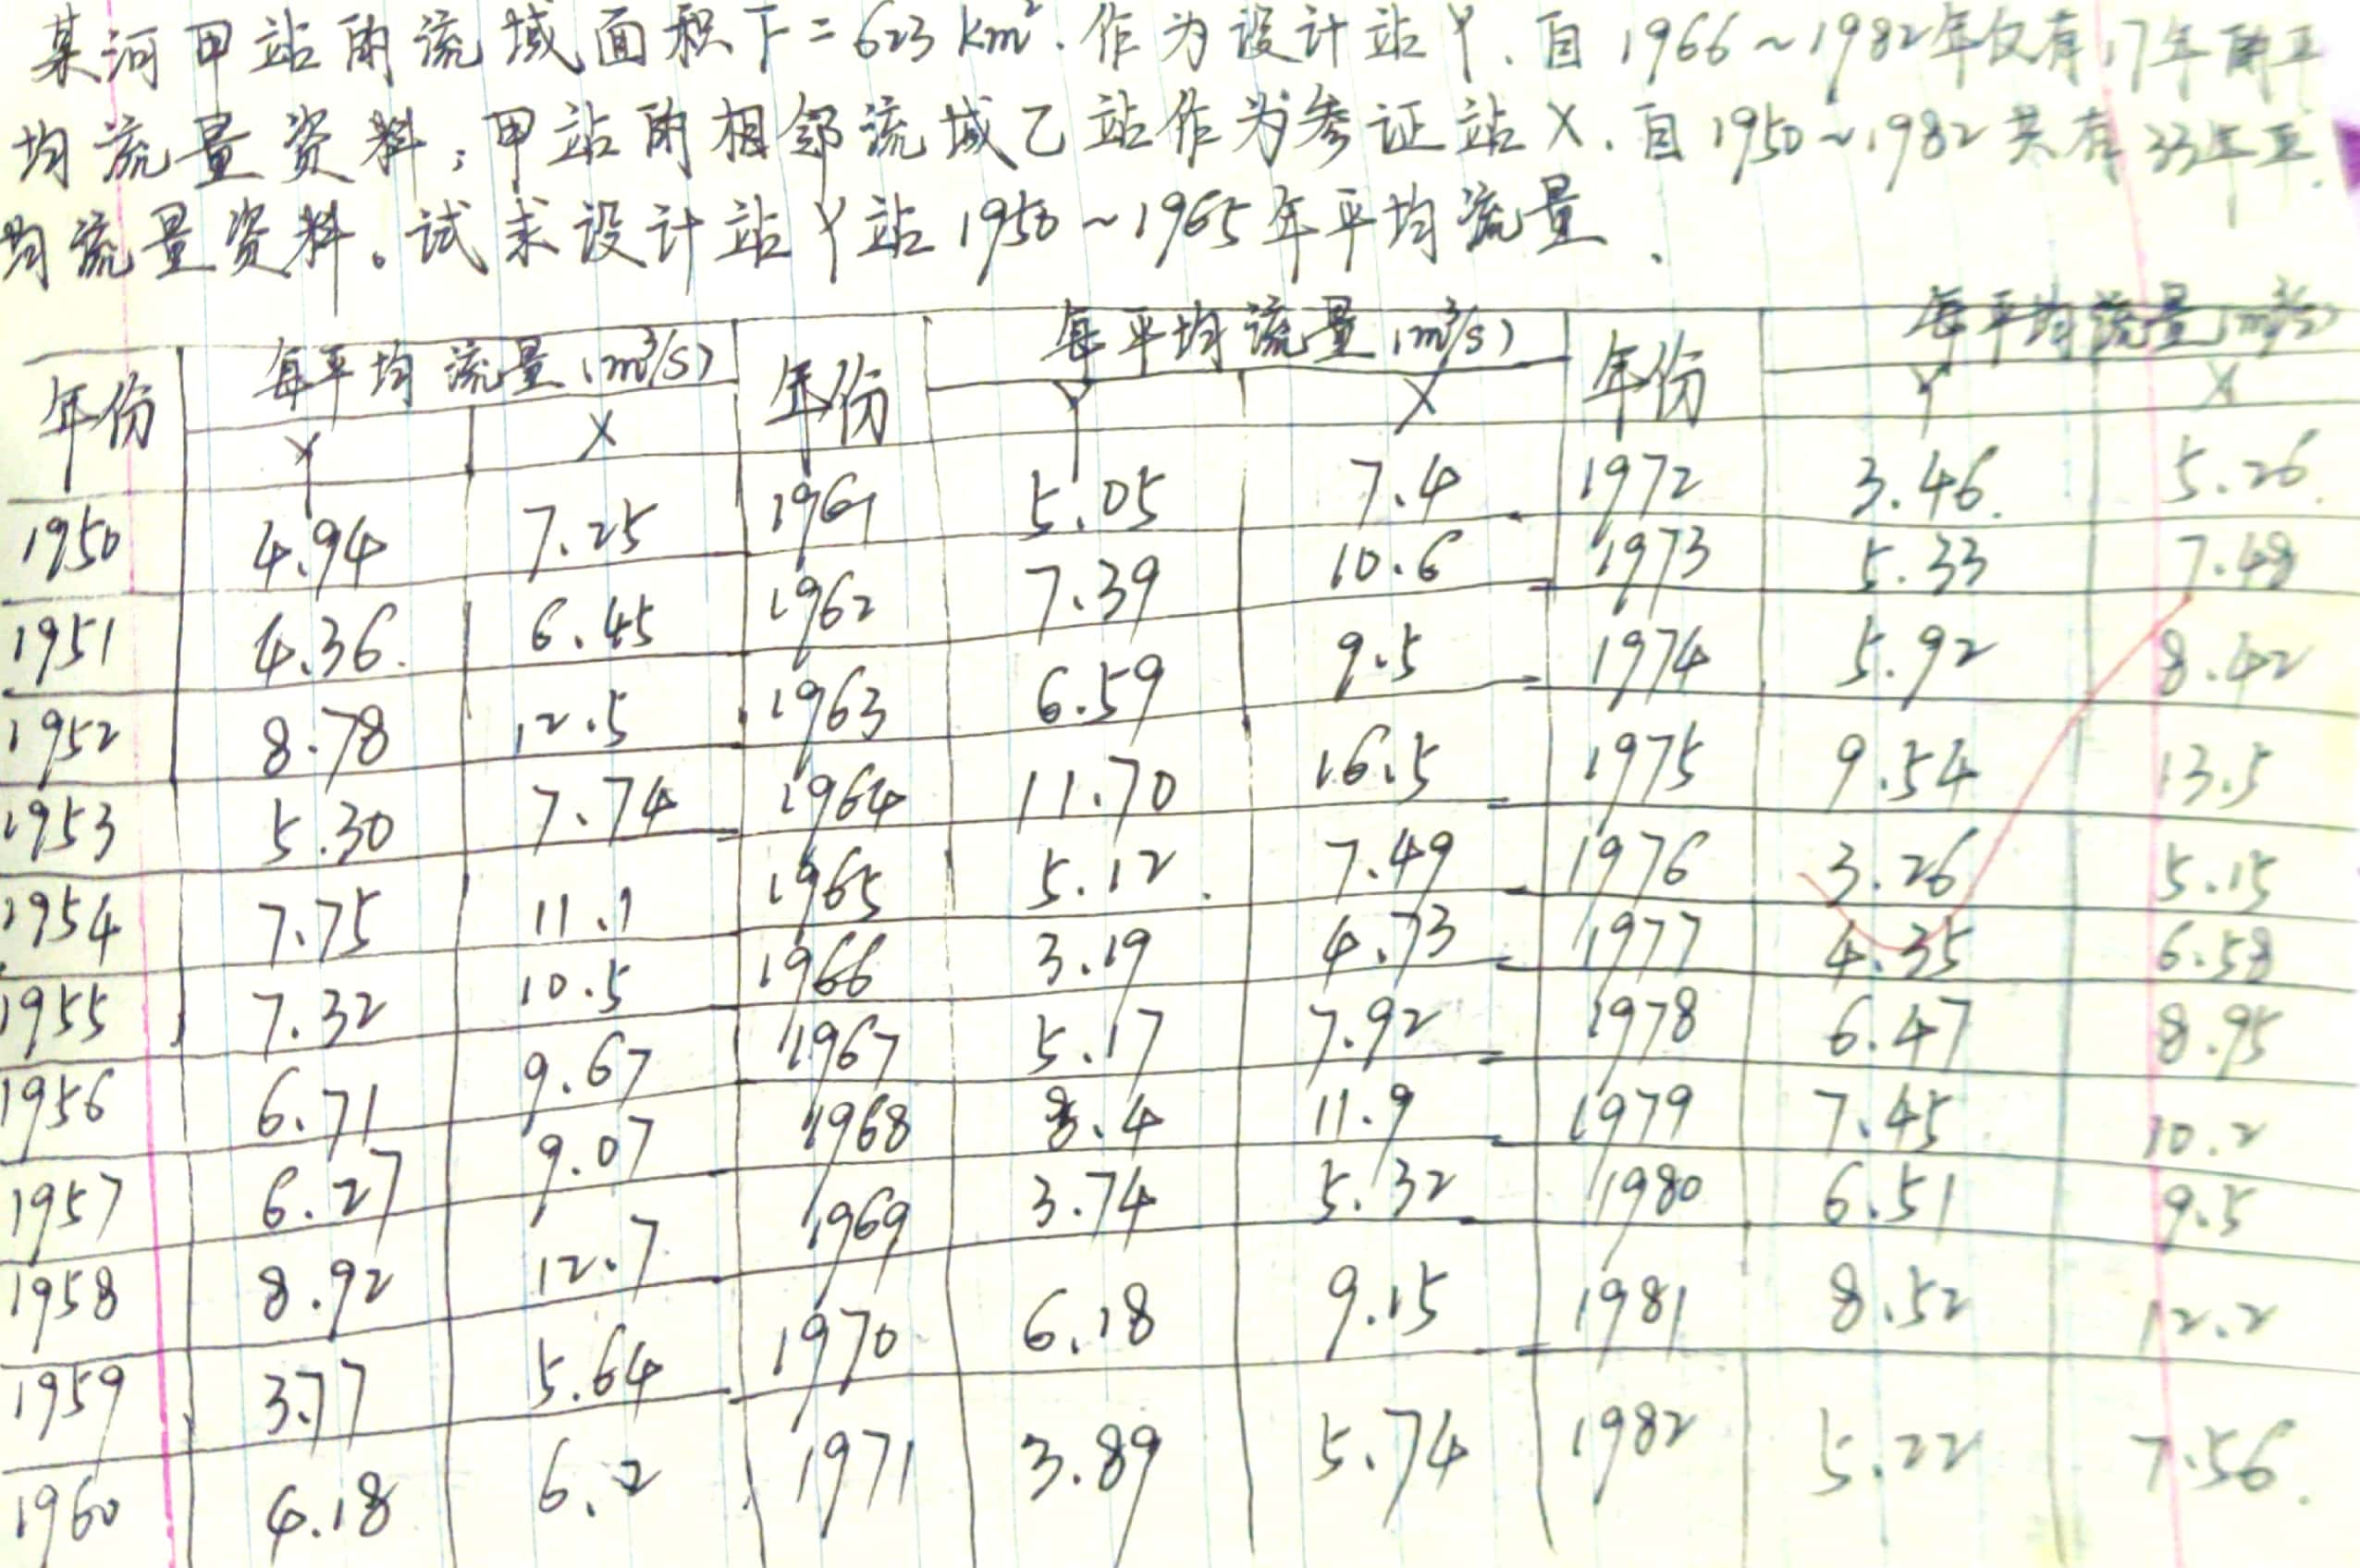 某河甲站的流域面积F=623 km². 作为设计站Y. 自1966~1982年仅有17年的平
均流量资料；甲站的相邻流域乙站作为参证站X. 自1950~1982共有33年平
均流量资料。试求设计站Y站1950~1965年平均流量.
年份 每平均流量(m³/s) 年份 每平均流量(m³/s) 年份 每平均流量(m³/s)
Y X Y X Y X
1950 4.94 7.25 1961 5.05 7.4 1972 3.46 5.26
1951 4.36 6.45 1962 7.39 10.6 1973 5.33 7.48
1952 8.78 12.5 1963 6.59 9.5 1974 5.92 8.42
1953 5.30 7.74 1964 11.70 16.5 1975 9.54 13.5
1954 7.75 11.1 1965 5.12 7.49 1976 3.26 5.15
1955 7.32 10.5 1966 3.19 4.73 1977 4.35 6.58
1956 6.71 9.67 1967 5.17 7.92 1978 6.47 8.95
1957 6.27 9.07 1968 8.4 11.9 1979 7.45 10.2
1958 8.92 12.7 1969 3.74 5.32 1980 6.51 9.5
1959 3.77 5.64 1970 6.18 9.15 1981 8.52 12.2
1960 4.18 6.2 1971 3.89 5.74 1982 5.22 7.56